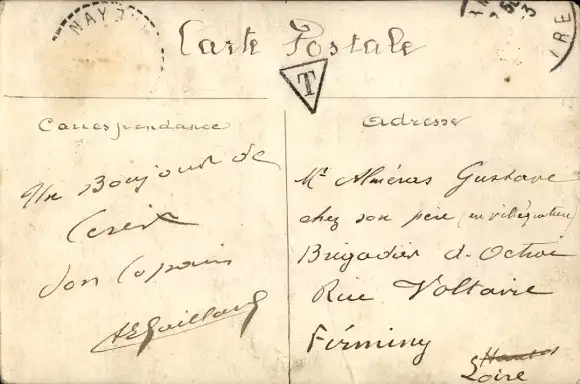 MAYENNE
Carte Postale
T
Correspondance
Adresse
Un Bonjour de
ton Copain
AE Gaillard
Mr Alméras Gustave
chez son père (en villégiature)
Brigadier d'Octroi
Rue Voltaire
Firminy
Loire